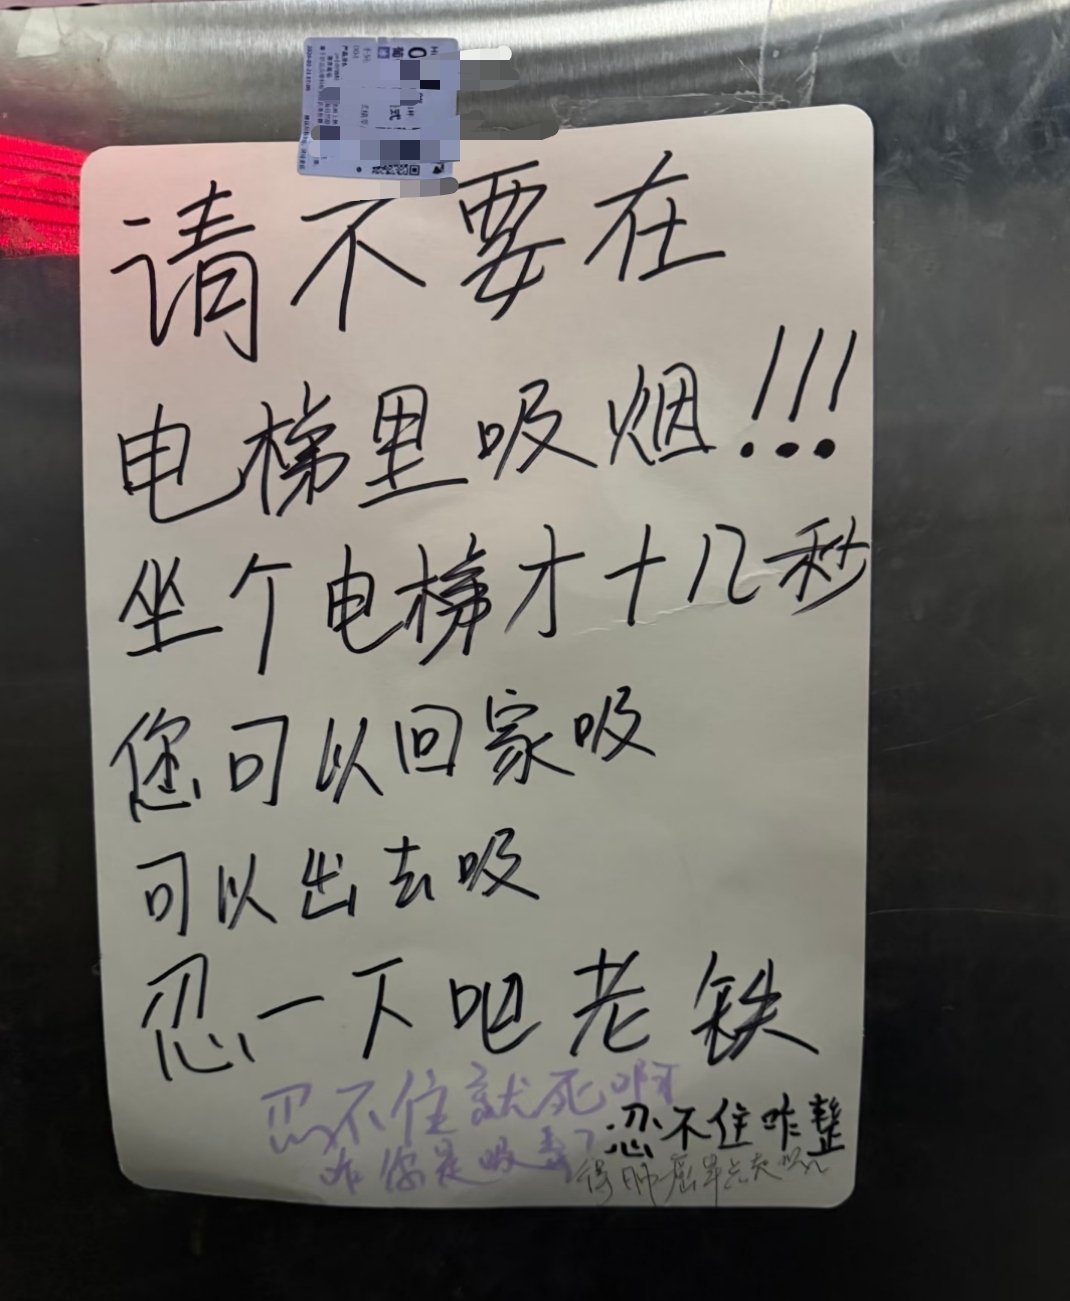 请不要在
电梯里吸烟!!!
坐个电梯才十几秒
您可以回家吸
可以出去吸
忍一下吧老铁
忍不住就死啊
忍不住咋整
咋你是吸毒?
得肿瘤早点走